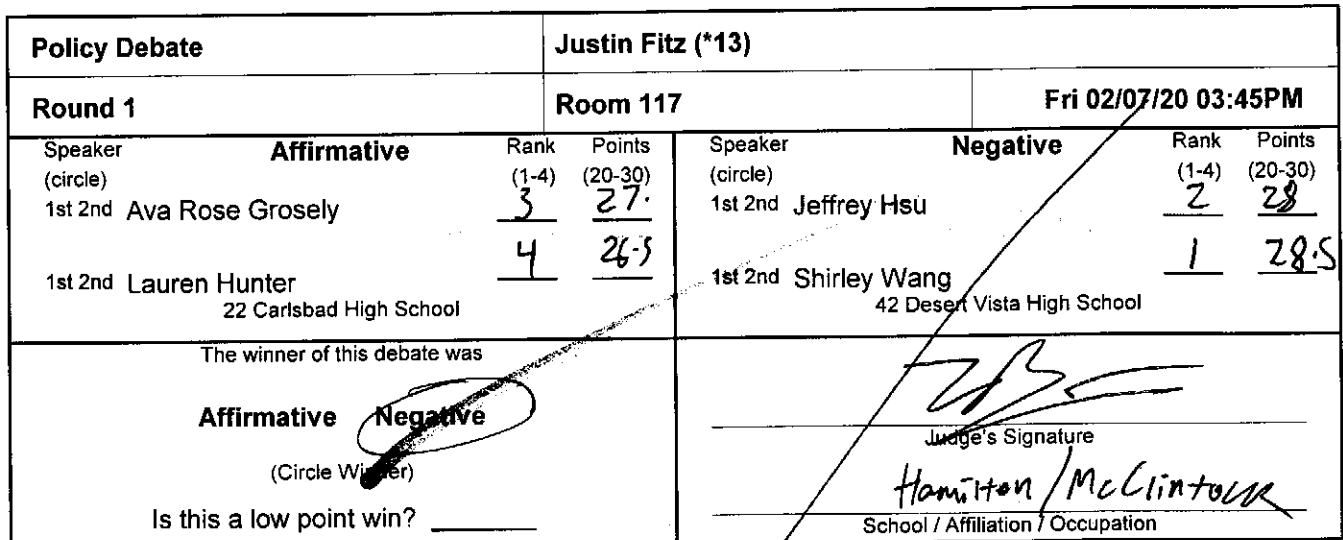 Policy Debate Justin Fitz (*13)
Round 1 Room 117 Fri 02/07/20 03:45PM
Speaker Affirmative Rank Points
(circle) (1-4) (20-30)
1st 2nd Ava Rose Grosely 3 27.
4 26.5
1st 2nd Lauren Hunter
22 Carlsbad High School
Speaker Negative Rank Points
(circle) (1-4) (20-30)
1st 2nd Jeffrey Hsu 2 28
1 28.5
1st 2nd Shirley Wang
42 Desert Vista High School
The winner of this debate was
Affirmative Negative
(Circle Winner)
Is this a low point win?
Judge's Signature
Hamilton / McClintock
School / Affiliation / Occupation